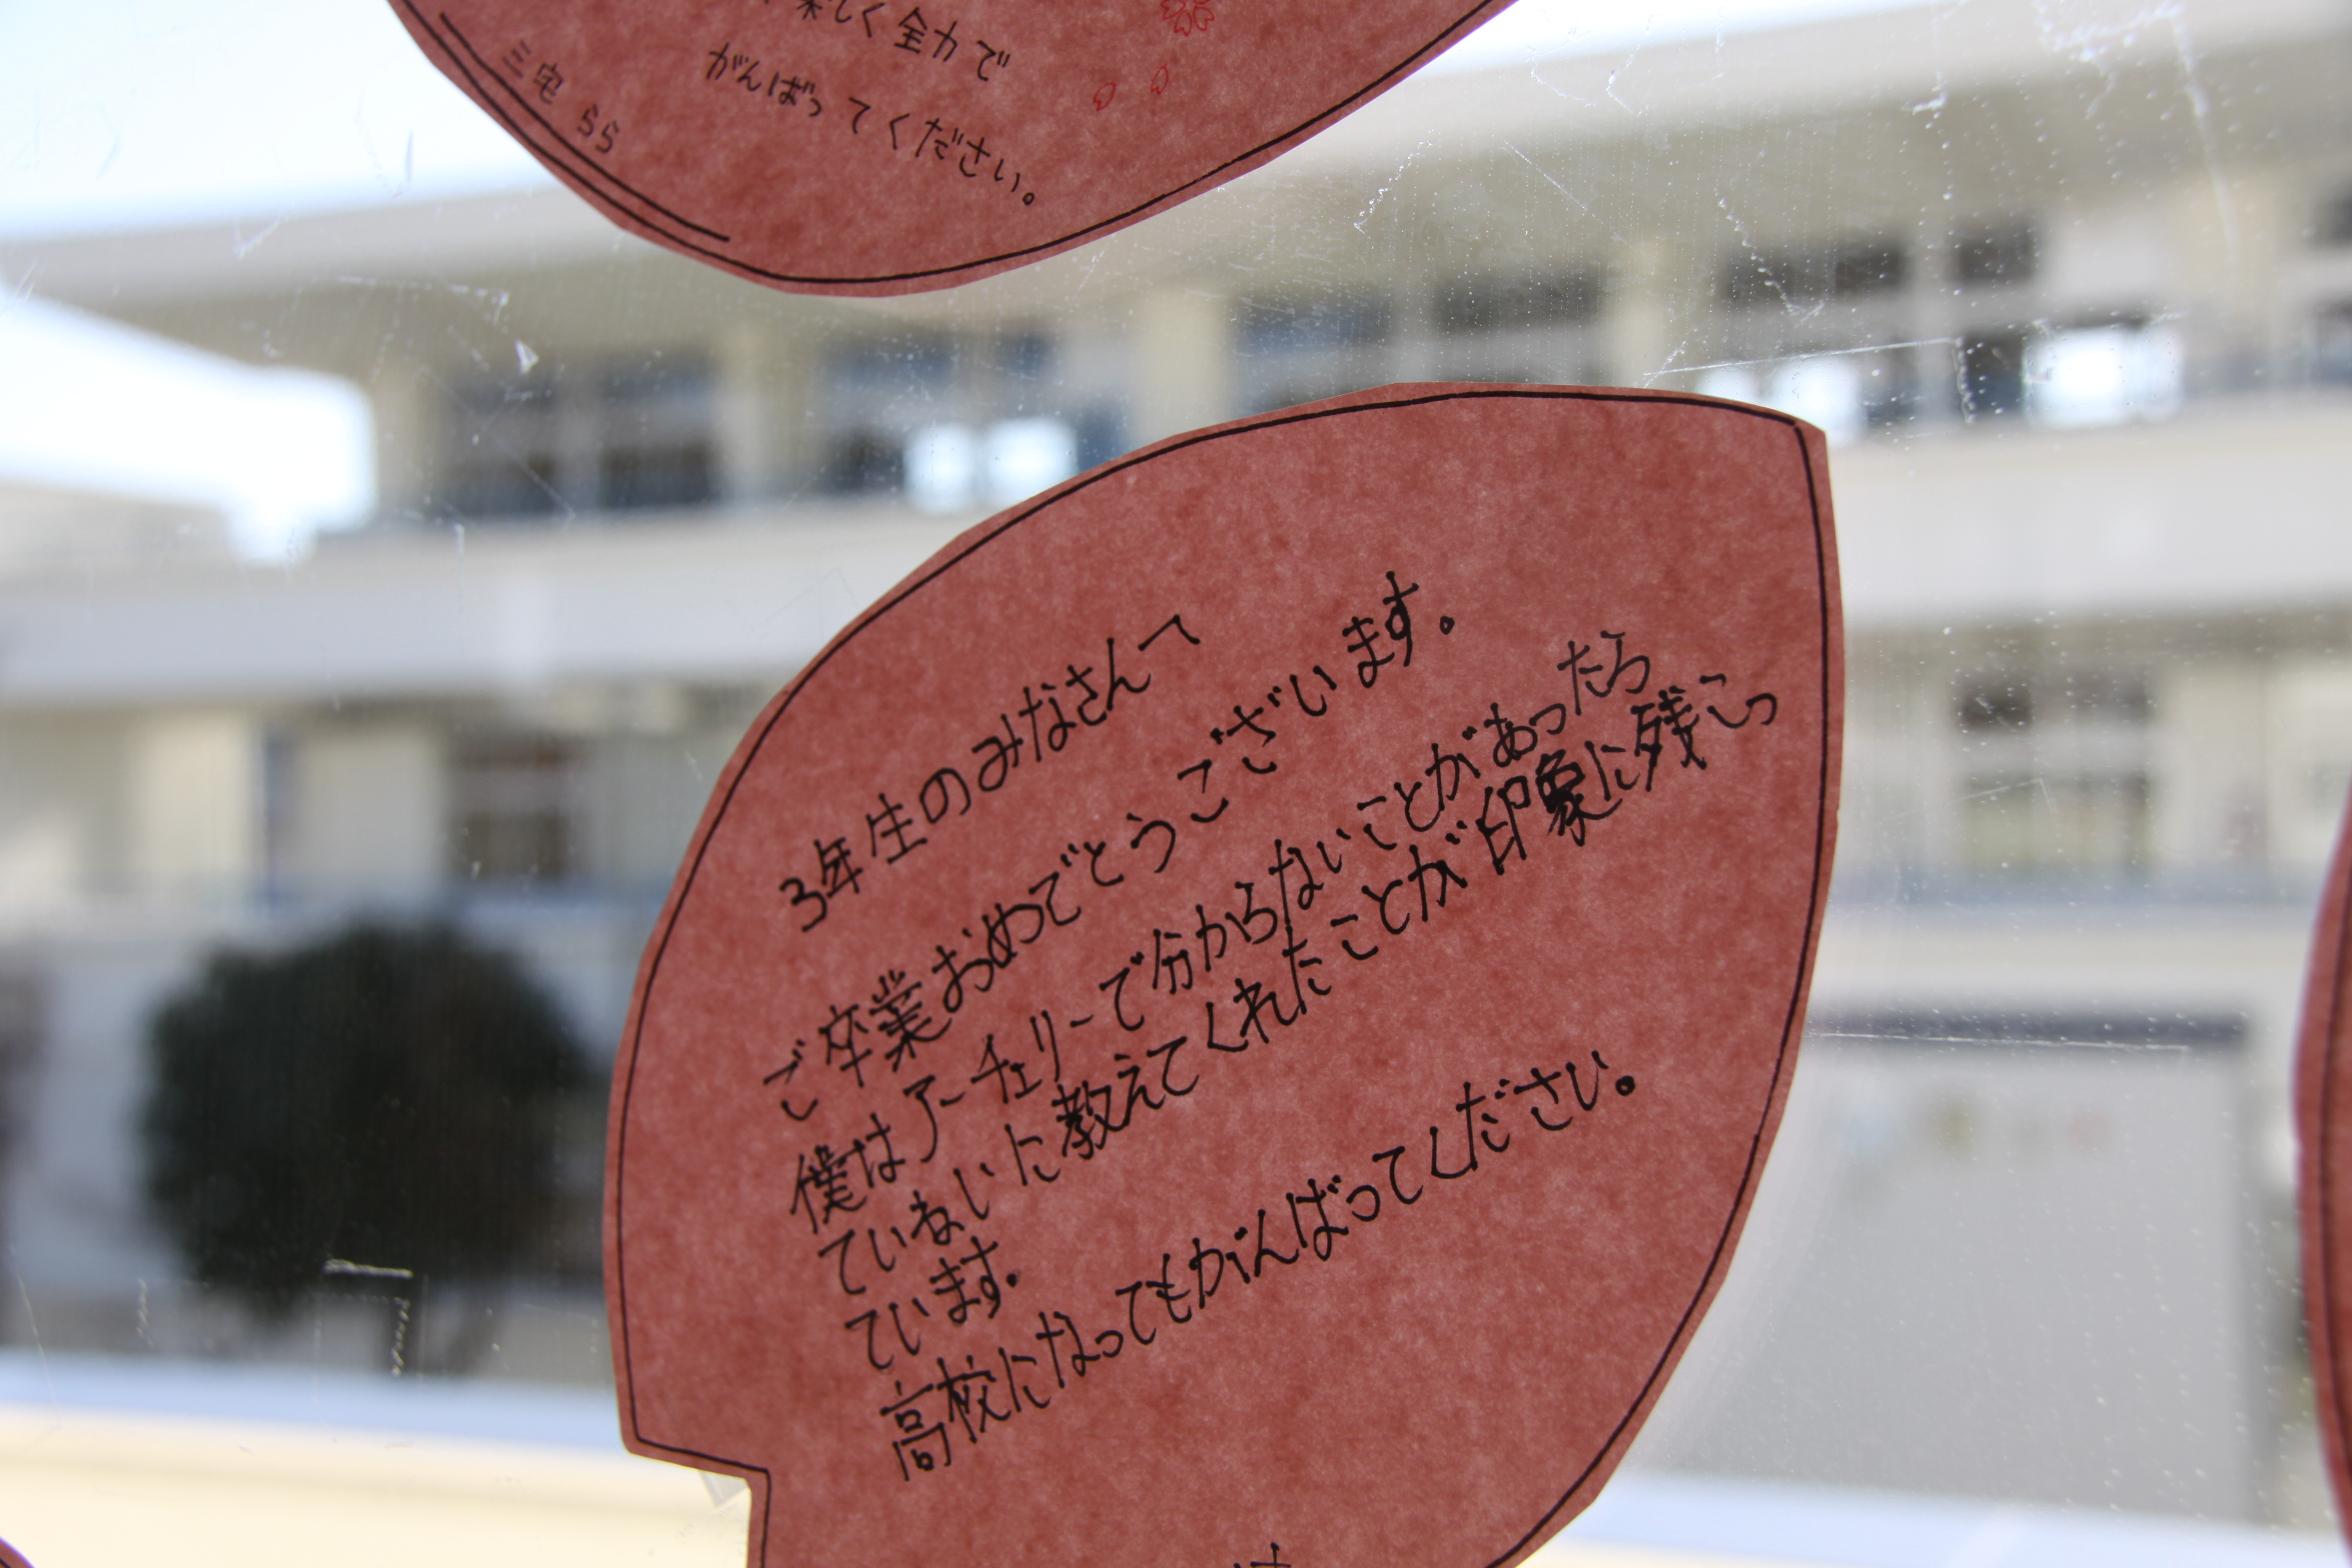 楽しく全力で
がんばってください。
三宅 らら
3年生のみなさんへ
ご卒業おめでとうございます。
僕はアーチェリーで分からないことがあったら
ていねいに教えてくれたことが印象に残こっ
ています。
高校になってもがんばってください。